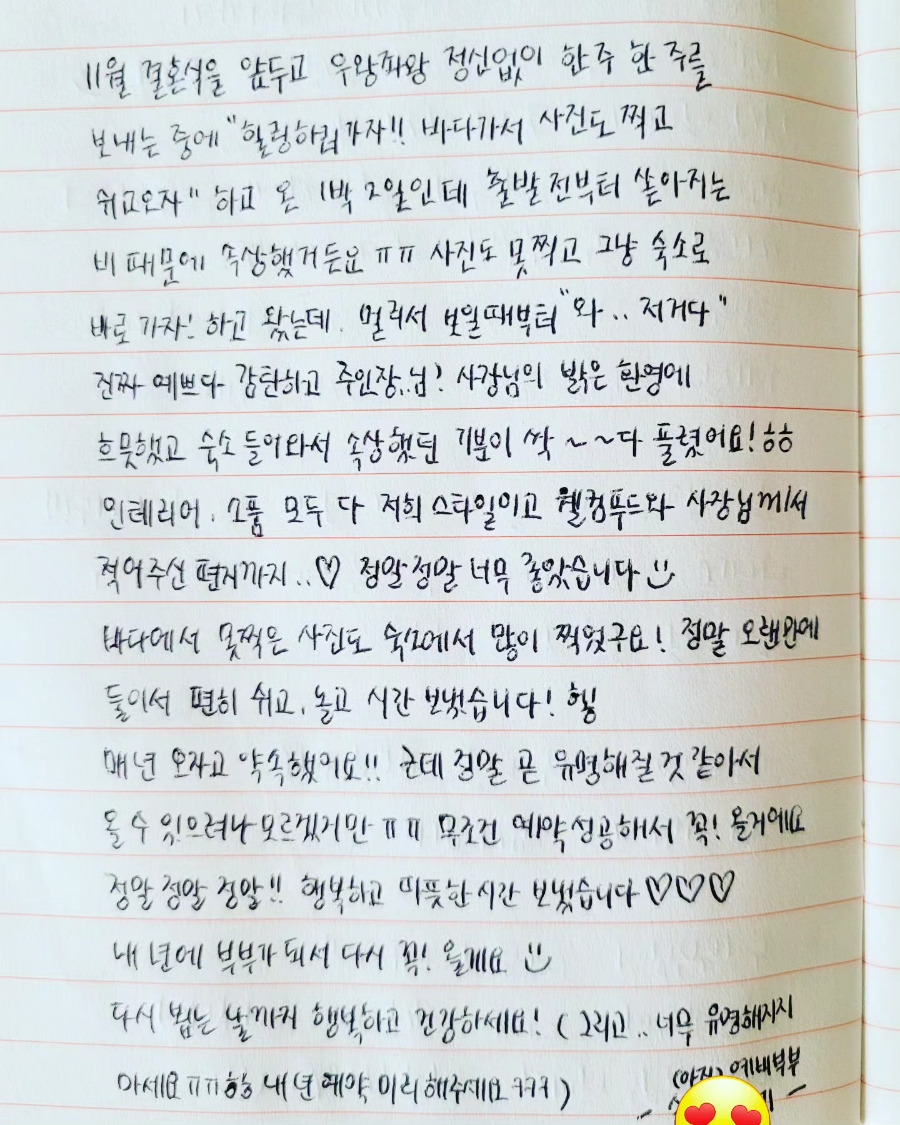 11월 결혼식을 앞두고 우왕좌왕 정신없이 한 주 한 주를
보내는 중에 "힐링하러가자!! 바다가서 사진도 찍고
쉬고오자" 하고 온 1박 2일인데 출발 전부터 쏟아지는
비 때문에 속상했거든요 ㅠㅠ 사진도 못찍고 그냥 숙소로
바로 가자! 하고 왔는데. 멀리서 보일때부터 "와.. 저거다"
진짜 예쁘다 감탄하고 주인장..님? 사장님의 밝은 환영에
흐뭇했고 숙소 들어와서 속상했던 기분이 싹~~다 풀렸어요! ㅎㅎ
인테리어, 소품 모두 다 저희 스타일이고 웰컴푸드와 사장님께서
적어주신 편지까지..♡ 정말 정말 너무 좋았습니다 :)
바다에서 못찍은 사진도 숙소에서 많이 찍었구요! 정말 오랜만에
둘이서 편히 쉬고, 놀고 시간 보냈습니다! 헿
매년 오자고 약속했어요!! 근데 정말 곧 유명해질것 같아서
올 수 있으려나 모르겠지만 ㅠㅠ 무조건 예약성공해서 꼭! 올거에요
정말 정말 정말!! 행복하고 따뜻한 시간 보냈습니다 ♡♡♡
내 년에 부부가 되서 다시 꼭! 올게요 :)
다시 뵙는 날까지 행복하고 건강하세요! ( 그리고.. 너무 유명해지지
마세요 ㅠㅠ ㅎㅎ 내 년 예약 미리 해주세요 ㅋㅋㅋ )
(아직) 예비부부